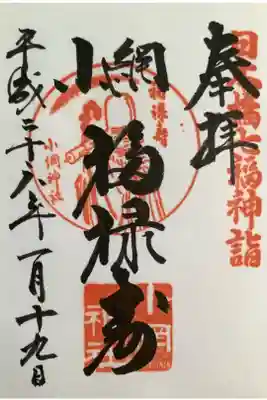 日本橋七福神詣
奉拝
小網福禄寿
福禄寿
小網神社
小網神社
平成二十八年一月十九日